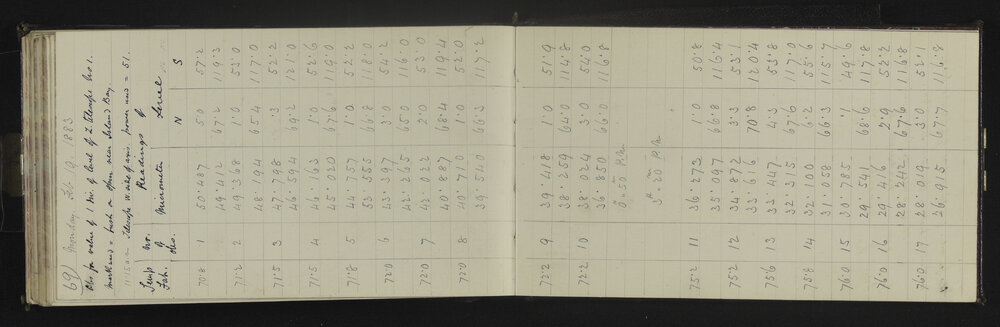 69) Monday Feb 19 1883
Obs. for value of 1 Div. of level of Z. Telescope No 1.
mark used = bush on spur near Island Bay
11.15 a.m. Telescope W side of axis. power used = 51.
Temp No. Readings of
Fah. of Micrometer Level
obs. N S
70.8 1 50.487 50 57.2
49.412 67.2 119.3
71.2 2 49.368 1.0 53.0
48.194 65.4 117.0
71.5 3 47.798 .3 52.2
46.594 69.2 121.0
71.5 4 46.163 1.0 52.6
45.020 67.6 119.0
71.8 5 44.757 1.0 52.2
53.555 66.8 118.0
72.0 6 43.397 3.0 54.2
42.265 65.0 116.0
72.0 7 42.022 2.0 53.0
40.887 68.4 119.4
72.0 8 40.710 1.0 52.0
39.540 66.3 117.2
72.2 9 39.418 1.0 51.9
38.259 64.0 114.8
72.2 10 38.024 3.0 54.0
36.850 66.0 116.8
0h 50m P.M.
3h 20m P.M.
75.2 11 36.273 1.0 50.8
35.097 66.8 116.4
75.2 12 34.872 3.3 53.1
33.616 70.8 120.4
75.6 13 33.447 4.3 53.8
32.315 67.6 117.0
75.8 14 32.100 6.2 55.6
31.058 66.3 115.7
76.0 15 30.785 .1 49.6
29.541 68.6
76.0 16 29.416 2.9 52.2
28.242 67.6 116.8
76.0 17 28.019 3.0 52.1
26.915 67.7 116.8